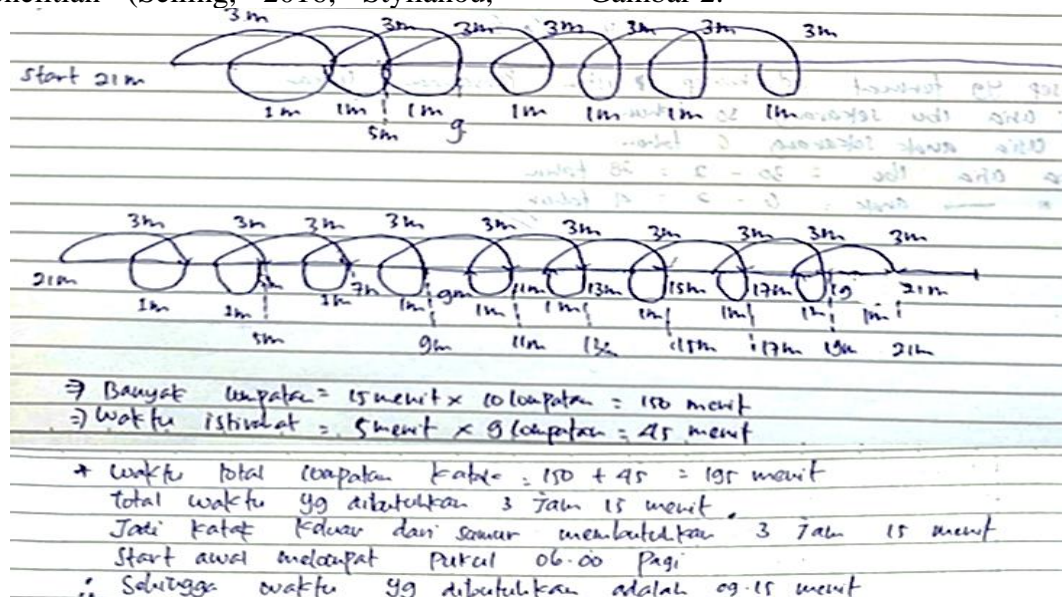 (Selling, 2016; Stylianou, Gambar 2.
3m 3m 3m 3m 3m 3m 3m
Start 21m
1m 1m 1m 1m 1m 1m 1m
5m 9
3m 3m 3m 3m 3m 3m 3m 3m 3m 3m
21m 7m 9m 11m 13m 15m 17m 19 21m
1m 1m 1m 1m 1m 1m 1m 1m 1m 1m
5m 9m 11m 13 15m 17m 19m 21m
⇒ Banyak lompatan = 15 menit x 10 lompatan = 150 menit
⇒ Waktu istirahat = 5 menit x 9 lompatan = 45 menit
* Waktu total lompatan katak = 150 + 45 = 195 menit
total waktu yg dibutuhkan 3 Jam 15 menit.
Jadi katak keluar dari sumur membutuhkan 3 Jam 15 menit
Start awal melompat Pukul 06.00 Pagi
∴ Sehingga waktu yg dibutuhkan adalah 09.15 menit